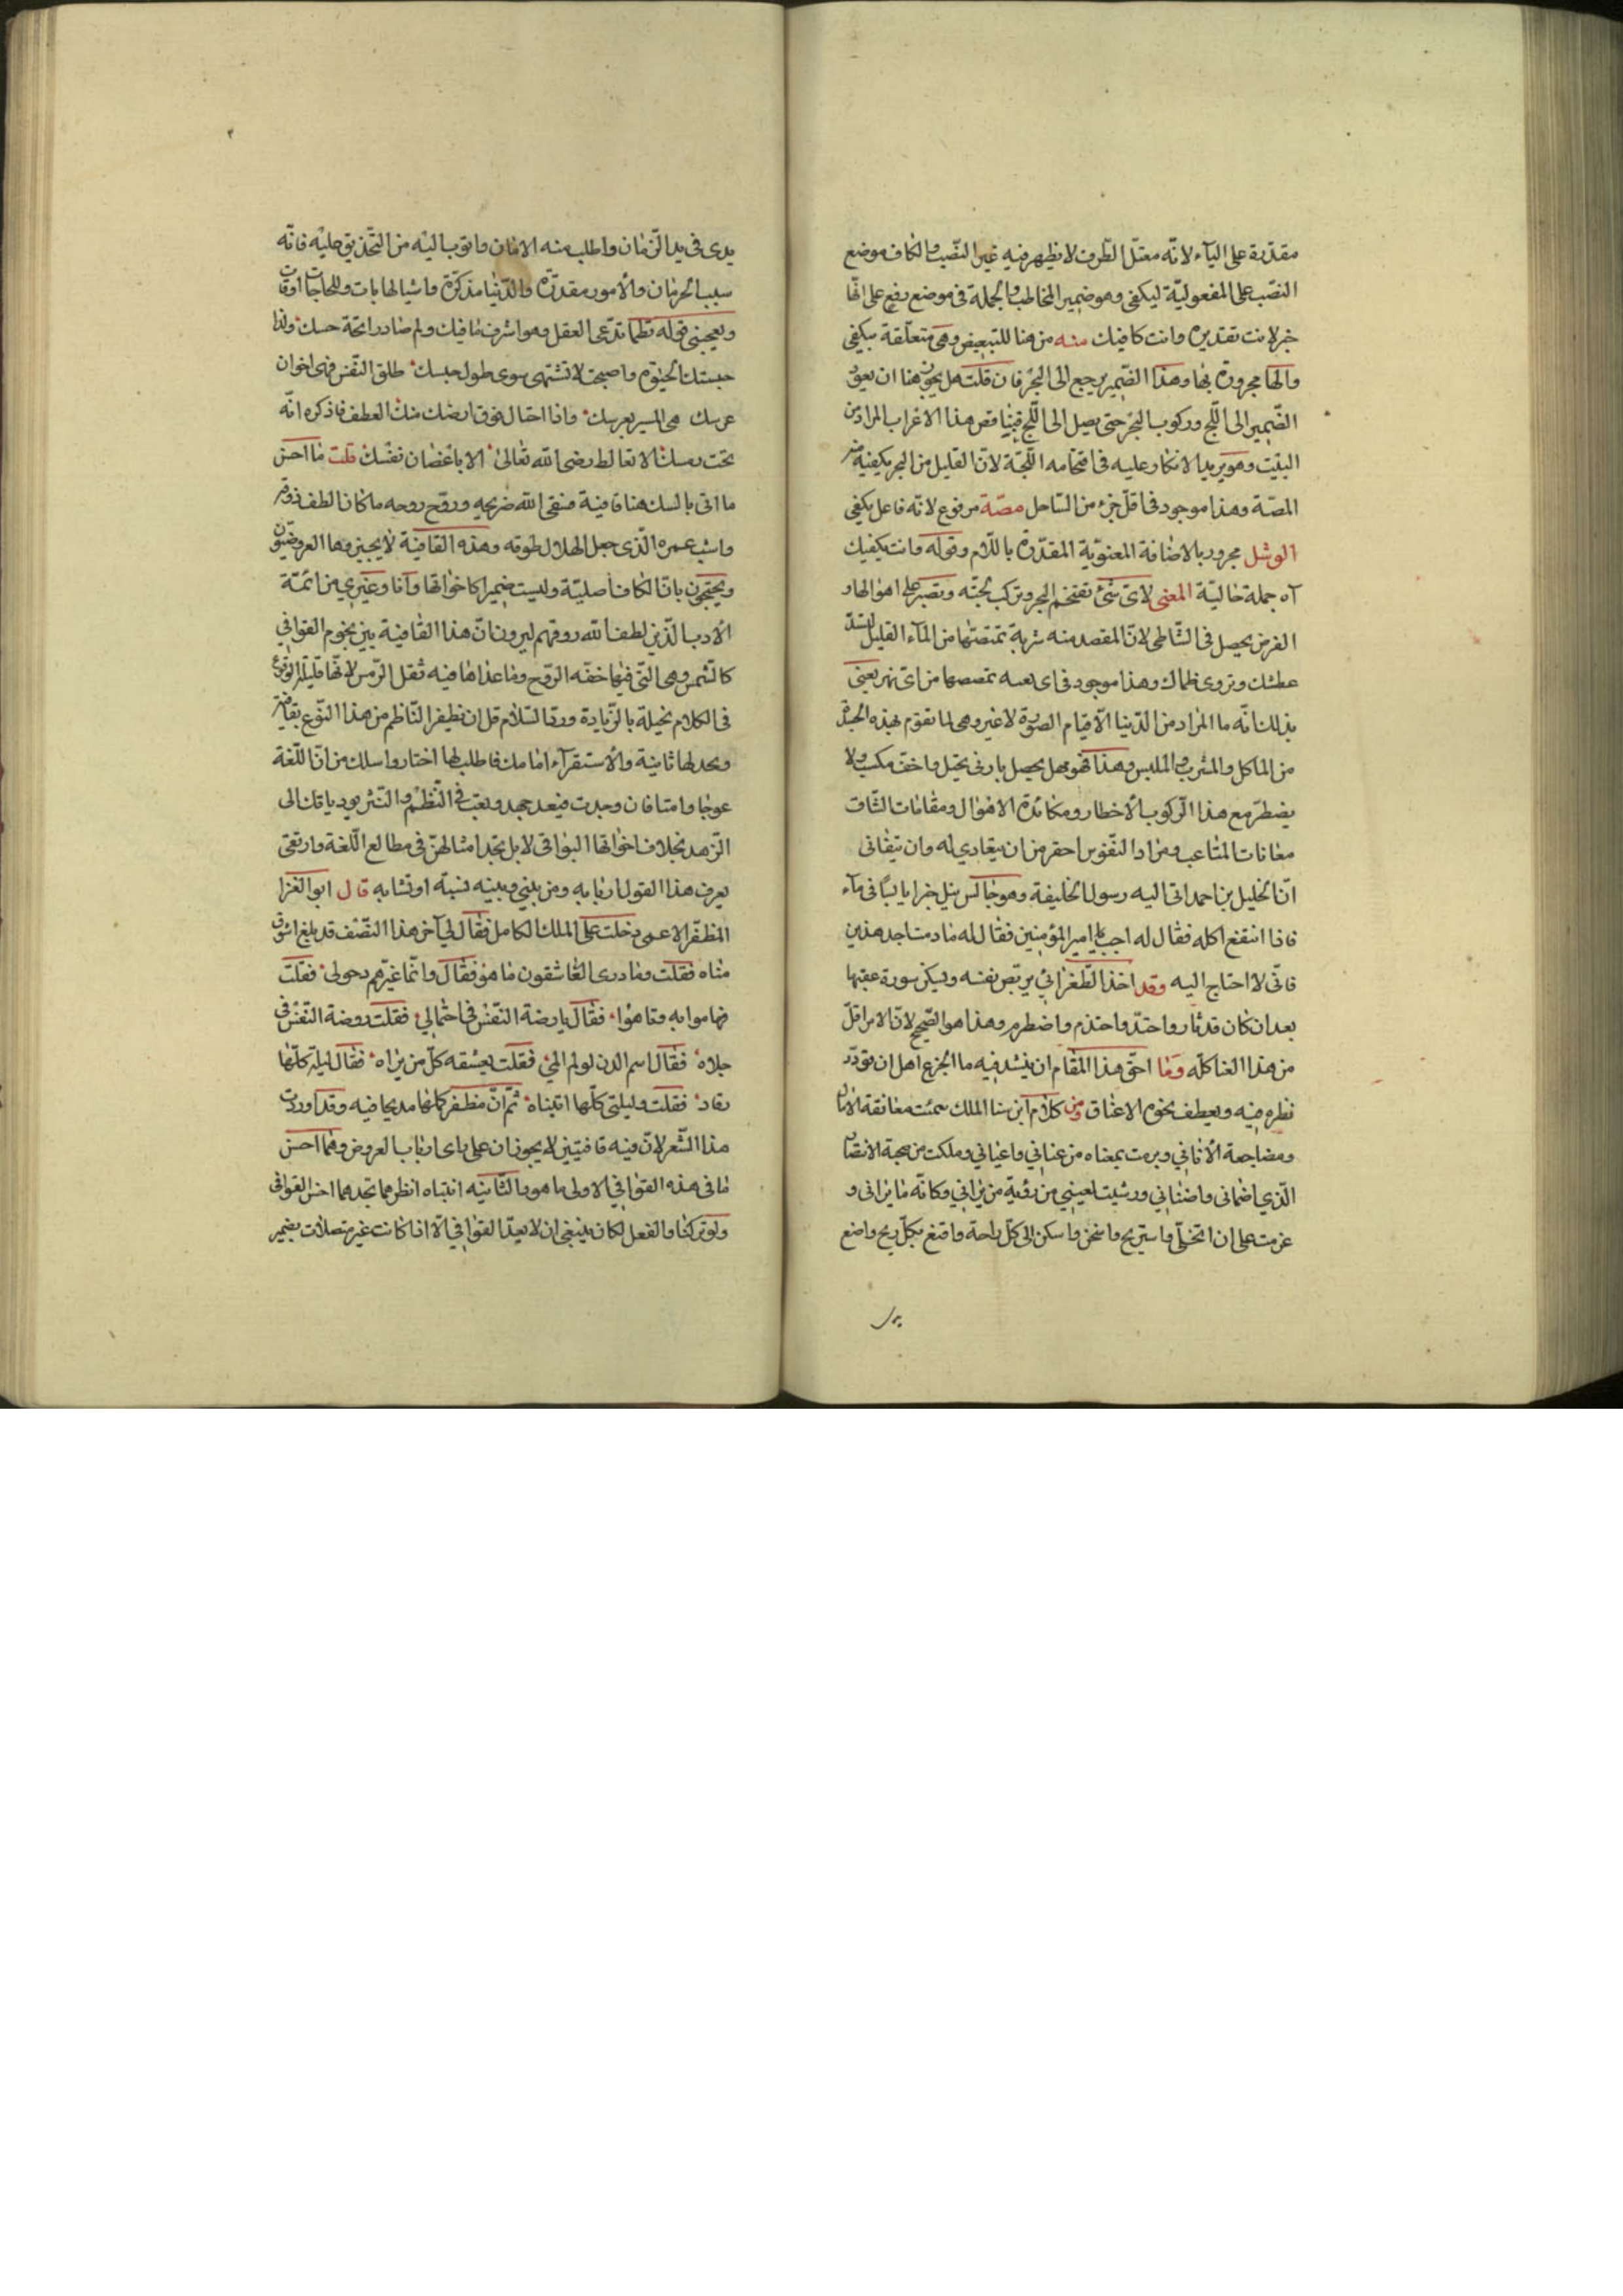 مقدّرة على اليآء لانّه معتلّ الطرف لا يظهر فيه غير النصب والكاف موضع
النصب على المفعوليّة ليكفى وهو ضمير المخاطب والجملة فى موضع رفع على انّها
خبر لانت تقديره وانت كافيك منه من هنا للتبعيض وهى متعلّقة بيكفى
والها مجرورة بها وهذا الضمير يرجع الى البحر فان قلت هل يجوز هنا ان يعود
الضّمير الى اللّجّ وركوب البحر حتى يصل الى اللّجّ فينا قض هذا الاعراب المراد من
البيت وهو يريد الانكار عليه فى اقتحامه اللّجّة لانّ القليل من البحر يكفيه منه
المصّة وهذا موجود فى اقلّ جزء من السّاحل مصّة مرفوع لانّه فاعل يكفى
الوشل مجرور بالاضافة المعنويّة المقدّرة باللّام وقوله وانت يكفيك
آه جملة حاليّة المعنى لاىّ شئ تقتحم البحر وتركب لجّته وتصبر على اهوالها و
الغرض يحصل فى الشّاطى لانّ المقصد منه شربة تمتصّها من المآء القليل لتسدّ
عطشك وتروى ظمأك وهذا موجود فى اى تمصصها من اىّ نهر يعنى
بذلك انّه ما المراد من الدّنيا الّا قيام الصورة لا غير وهى لما تقوم بهذه الجملة
من الماكل والمشرب والملبس وهذا فهو سهل يحصل بادنى تحيّل واخفّ مكسب ولا
يضطرّ مع هذا الركوب الأخطار ومكابدة الاهوال ومقامات الشّاق
معانات المتاعب ومراد النّفوس احقر من ان يتعادى له وان يتفانى
انّ الخليل بن احمد اتى اليه رسول الخليفة وهو جالس يبل خبزا يابسًا فى مآء
فاذا انتقع اكله فقال له اجب امير المؤمنين فقال له ما دمت اجد هذين
فانّى لا احتاج اليه وقد اخذ الطّغرائى يربّص نفسه ويسكن سورة عقبها
بعد ان كان قد ثار واحتدّ واحتدم واضطرم وهذا هو الصّحيح لانّ الامر اقلّ
من هذا العنا كلّه وما احقّ هذا المقام ان ينشد فيه ما الجزع اهل ان تردّد
نظره فيه ويعطف نحوه الاعناق ومن كلام ابن سنا الملك سئمت معانقة الامانى
ومضاجعة الأنانى وبرمت بمعناه من عنانى واعيانى وملكت من صحبة الانسان
الّذى اضمانى واضنانى ورثيت لعينى من رؤية من يرانى وكانّه ما يرانى و
عزمت على ان اتخلّى واستريح واسكن الى كلّ راحة واقنع بكلّ ريح واضع
يدى فى يد الزّمان واطلب منه الامان واتوب اليه من التّحذيق عليه فانّه
سبب الحرمان والأمور مقدّرة والدّنيا مذكرة واشيا لها بات وللحاجات اوقات
ويعجبنى قوله نظما تدّعى العقل وهو اشرف ما فيك ولم صادر ائحة حسك ولذا
حبستك الحتوم واصبحت لا تشتهى سوى طول حبسك طلق النّفس فهى اخوان
عرسك هى السير بعرسك واذا احتال فوق ارضك منك العطف فاذكره انّه
تحت رمسك لا تغالط رضى الله تعالى الا باغضان نفسك قلت ما احسن
ما اتى بالسك هنا قافية فسقى الله ضريحه وروّح روحه ما كان الطف ذوقه
واشب عمره الّذى جعل الهلال طوقه وهذه القافية لا يجيزوها العروضيّون
ويحتجّون بانّ الكاف اصليّة وليست ضميرا كاخواتها وانا وغيرى من ائمّة
الأدب الّذين لطف الله ذوقهم ليرون انّ هذا القافية بين نجوم القوافى
كالشّمس وهى الّتى فيها خفّه الرّوح وما عداها فيه ثقل الرّمس لانّها قليلة الوقوع
فى الكلام بخيلة بالزّيادة وردّ السّلام قل ان يظفر النّاظم من هذا النّوع بقافية
ويجد لها ثانية والأستقرآء امامك فاطلبها اختار واسلك من انّ اللّغة
عوجا وامتا فان وجدت فبعد جهد وتعب فى النّظم والنّثر يوديانك الى
الزّهد بخلاف اخواتها البواقى لا بل تجد امثالهنّ فى مطالع اللّغة وارتقى
يعرف هذا القول اربابه ومن بينى وبينه نسبة او تشابه قال ابو العز
المظفّر الاعمى دخلت على الملك الكامل فقال لى آخر هذا النّصف قد بلغ الشّوق
مناه فقلت وما درى العاشقون ما هو فقال وانّما غيرهم دخولى فقلت
فهاموا به وتاهوا فقال يا رضة النّفس فى احتمالى فقلت روضة النّفس فى
جلاه فقال اسم الدن لولم المىء فقلت يعشقه كلّ من يراه فقال ليلة كلّها
رقاد فقلت وليلتى كلّها انتباه ثمّ انّ مظفر كملها مديحا فيه وقد اوردت
هذا الشّعر لانّ فيه قافيتين لا يجوزان على راى ارباب العروض وهما احسن
ما فى هذه القوافى الاولى ما هو والثّانية انتباه انظرهما تجدهما احسن القوافى
ولو تركنا والفعل لكان ينبغى ان لا يعدّ القوافى الّا اذا كانت غير متصلات بضمير